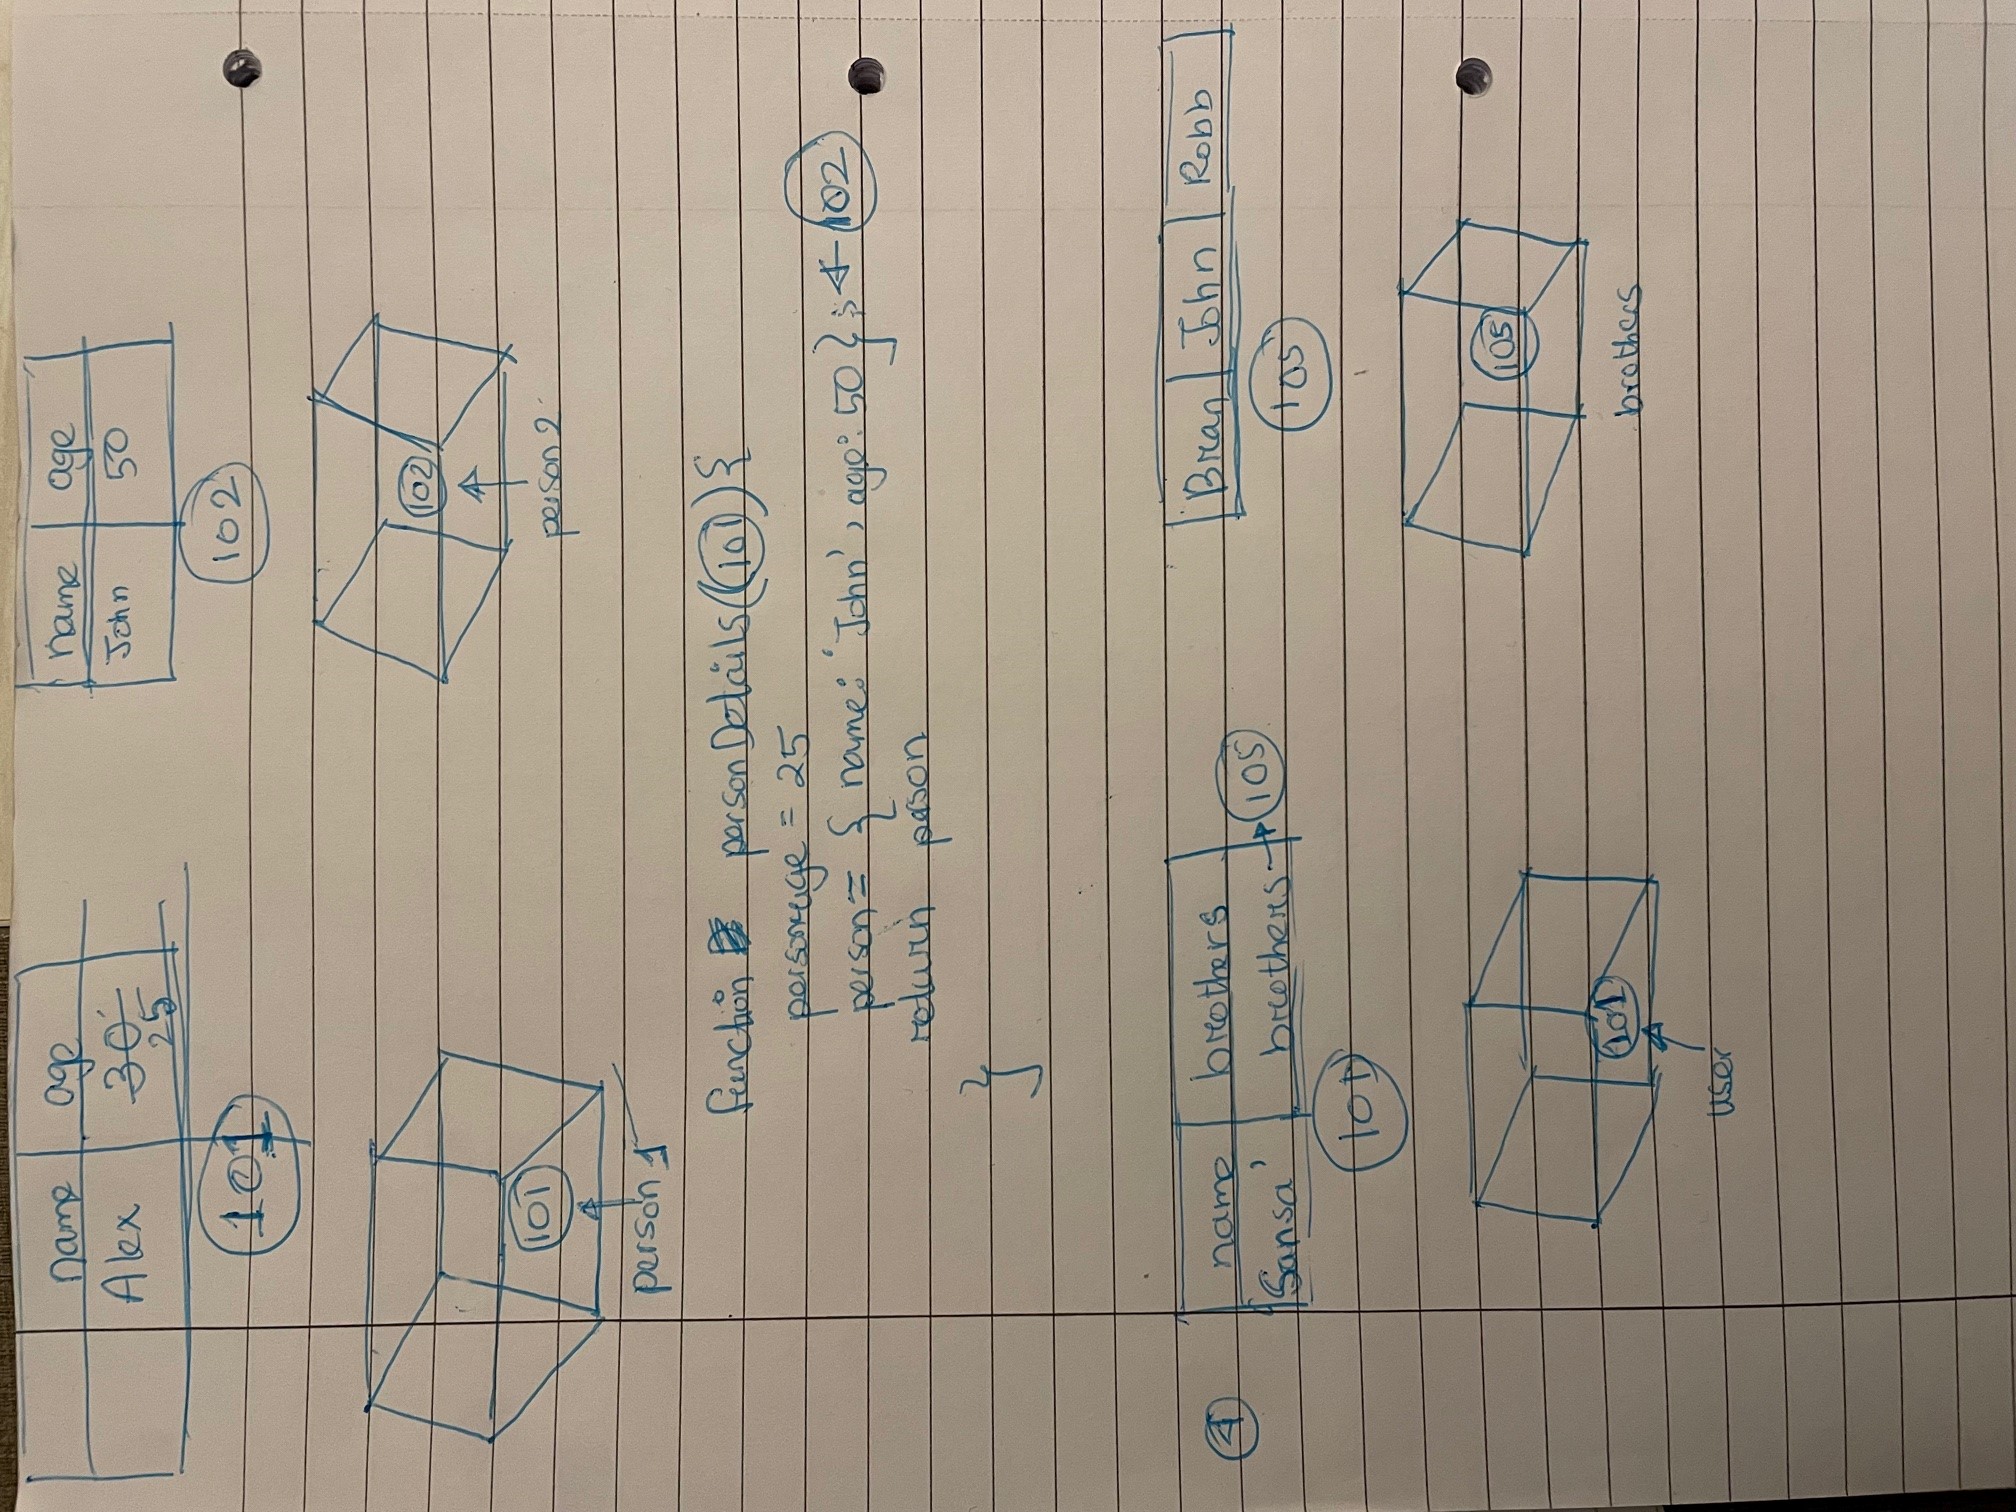 name age
Alex 30 25
101
101
person 1
name age
John 50
102
102
person 2
function personDetails(101){
person.age = 25
person = { name: 'John', age: 50 }; ← 102
return person
}
4
name brothers
'Sansa' brothers → 105
101
101
user
Bran John Robb
105
105
brothers